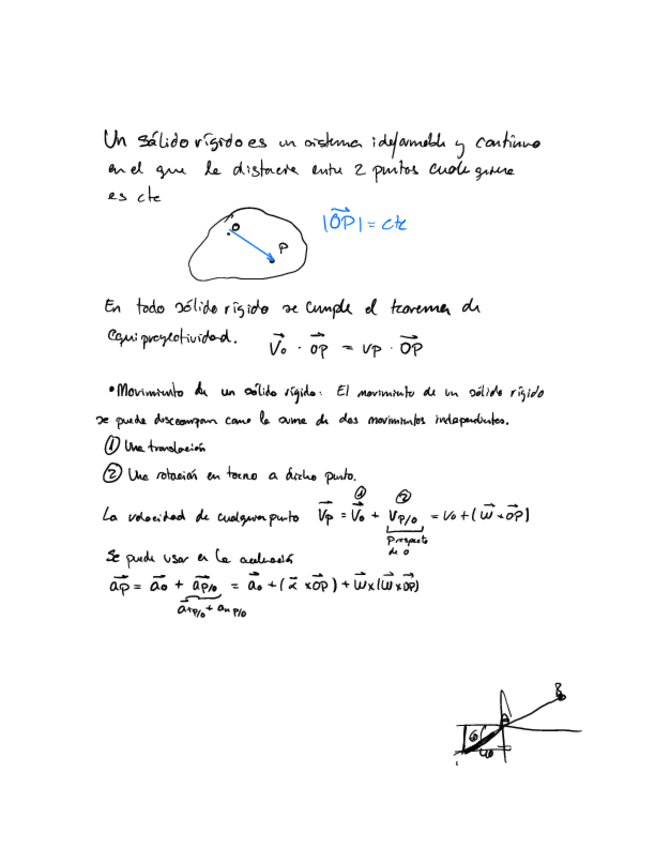 Un sólido rígido es un sistema ideformable y continuo
en el que la distancia entre 2 puntos cualquiera
es cte
O
P
|OP| = cte
En todo sólido rígido se cumple el teorema de
equiproyectividad. Vo · OP = VP · OP
• Movimiento de un sólido rígido: El movimiento de un sólido rígido
se puede descomponer como la suma de dos movimientos independientes.
① Una translación
② Una rotación en torno a dicho punto.
① ②
La velocidad de cualquier punto Vp = Vo + Vp/o = Vo + (ω × OP)
P respecto
de O
Se puede usar en la aceleración
ap = ao + ap/o = ao + (α × OP) + ω × (ω × OP)
atp/o + anp/o
B
A